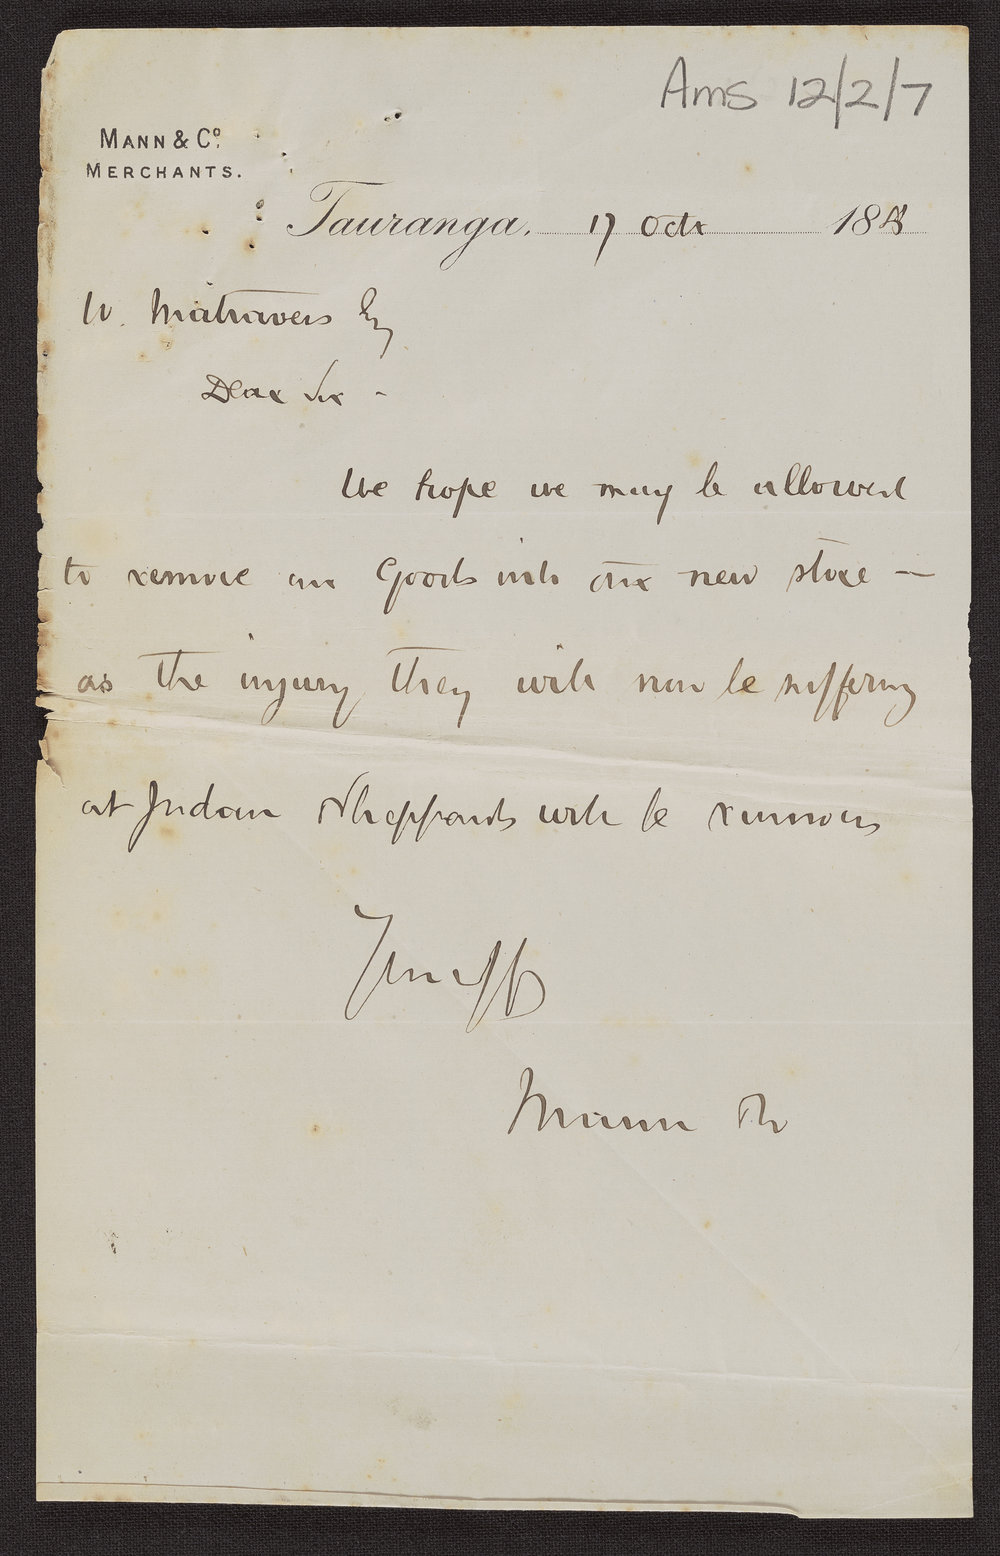 Ams 12/2/7
MANN & Co.
MERCHANTS.
Tauranga, 17 Octr 188
W. Matravers Esq
Dear Sir -
We hope we may be allowed
to remove our Goods into our new store —
as the injury they will now be suffering
at Jordan Sheppards will be ruinous
Mann & Co